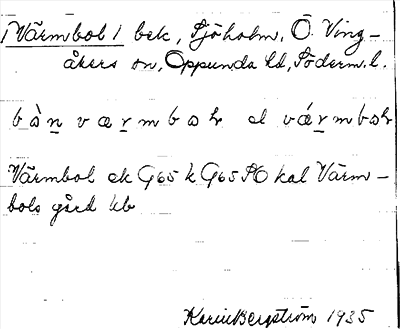 [Värmbol] bek, Sjöholm, Ö. Ving-
åkers sn, Oppunda hd, Söderm. l.
Värmbol ek G65 k G65 SO kal Värm-
bols gård kb
Karin Bergström 1935